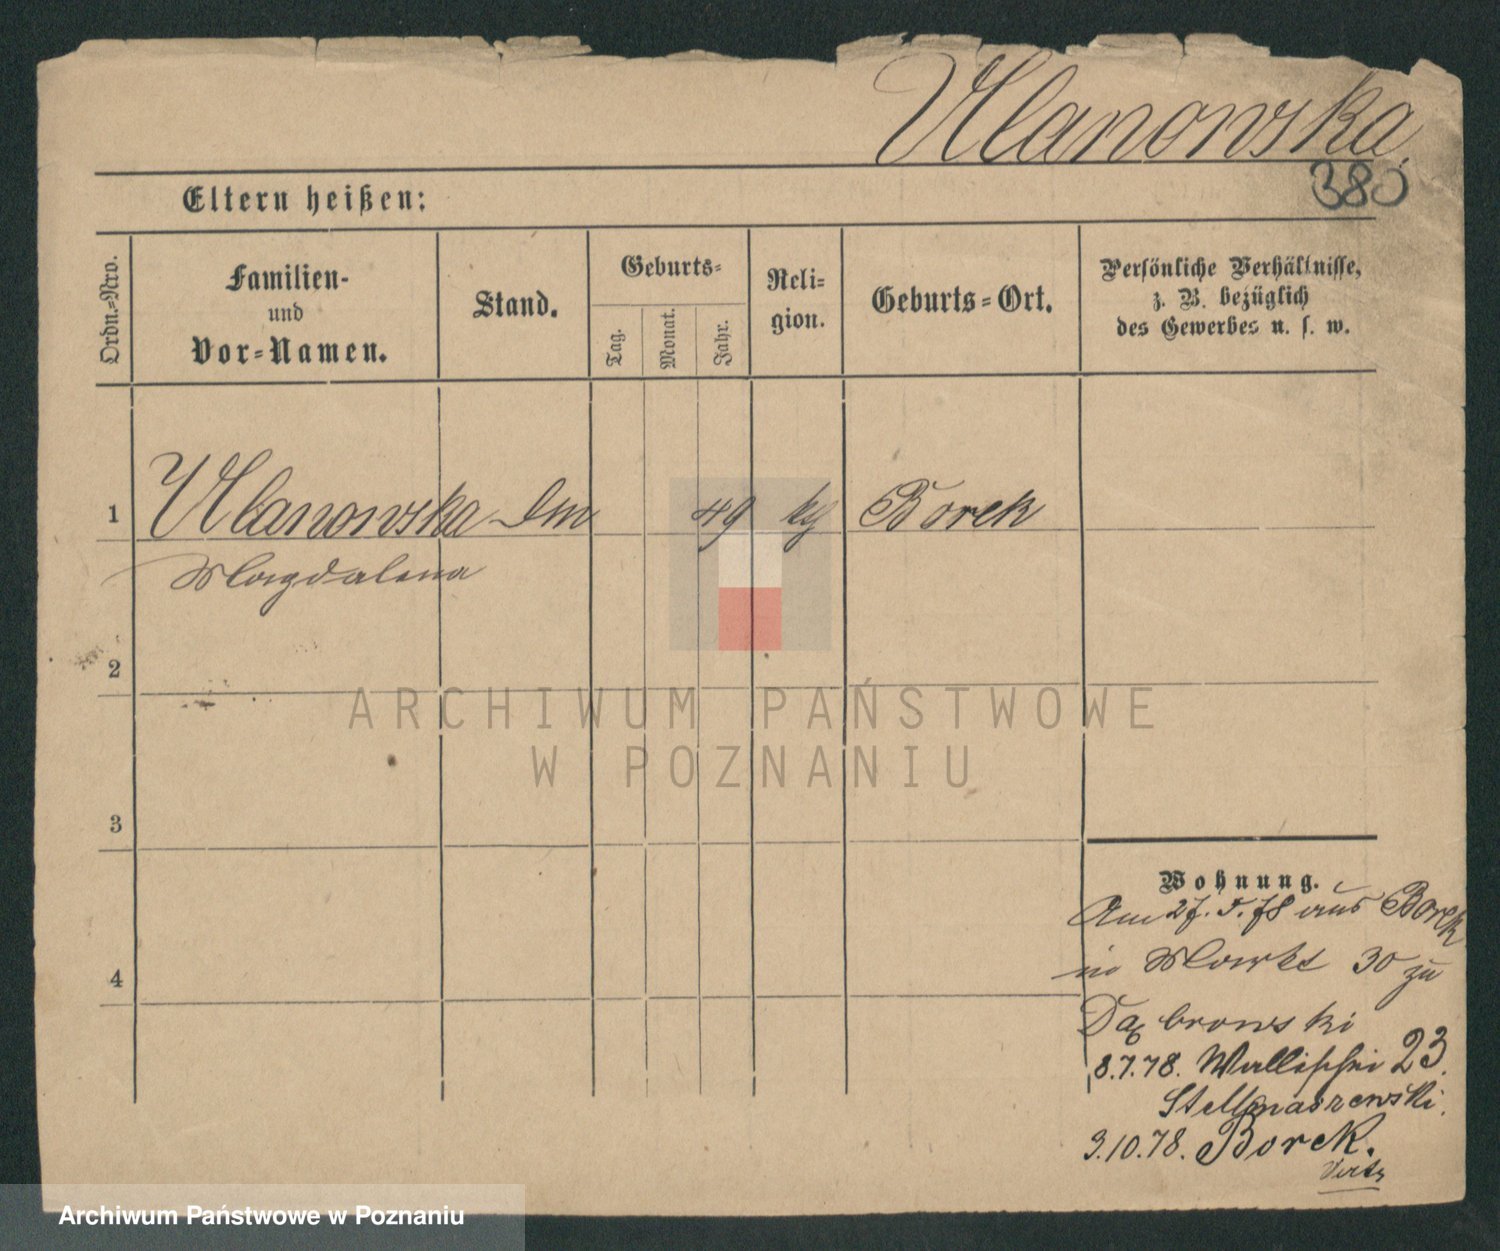 Ulanowska
380
Eltern heißen:
Ordn.=Nro.
Familien-
und
Vor=Namen.
Stand.
Geburts=
Tag.
Monat.
Jahr.
Reli-
gion.
Geburts=Ort.
Persönliche Verhältnisse,
z. B. bezüglich
des Gewerbes u. s. w.
1 Ulanowska 49 Borek
Magdalena
2
3
4
Wohnung.
Am 27.5.78 aus Borek
in Markt 30 zu
Dąbrowski
8.7.78. Wallischei 23.
Stellmaszewski.
3.10.78. Borek.
ARCHIWUM PAŃSTWOWE
W POZNANIU
Archiwum Państwowe w Poznaniu